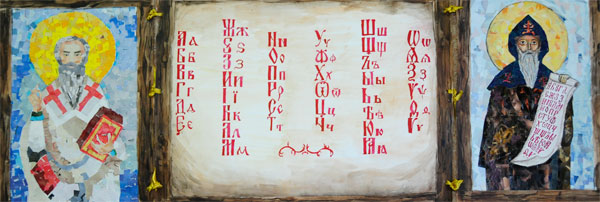 Аа
Бб
Вв
Гг
Дд
Ее
Жж
Ѕѕ
Зз
Ии
Її
Кк
Лл
Мм
Нн
Оо
Пп
Рр
Сс
Тт
Уу
Фф
Хх
Ѿѿ
Цц
Чч
Шш
Щщ
Ъъ
Ыы
Ьь
Ѣѣ
Юю
Ꙗꙗ
Ѡѡ
Ѧѧ
Ѯѯ
Ѱѱ
Ѳѳ
Ѵѵ